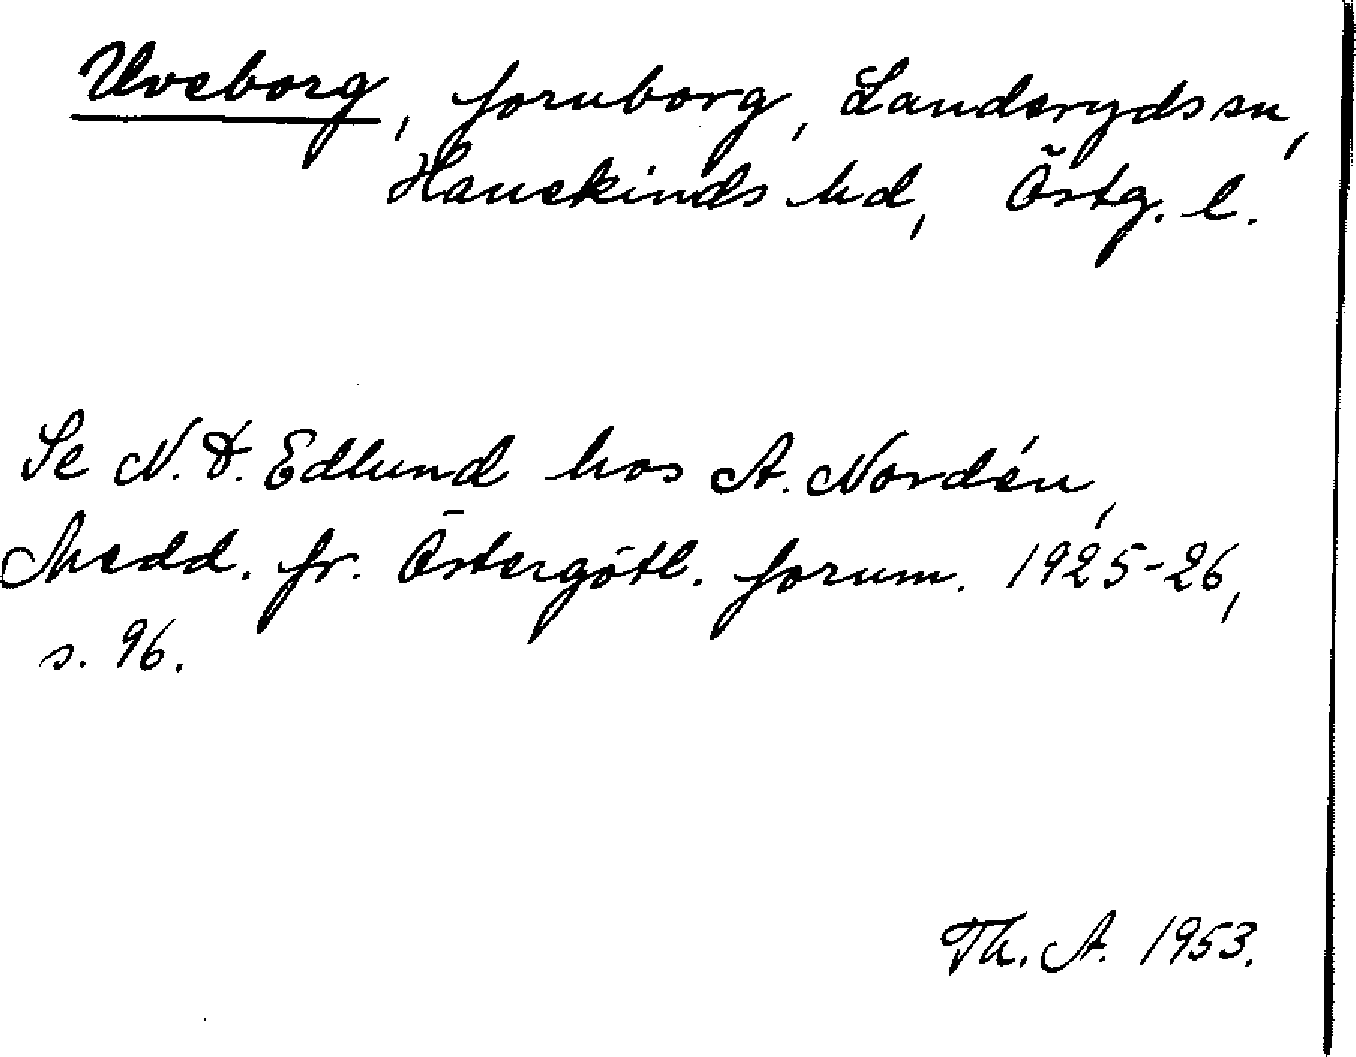 Uveborg, fornborg, Landerydssn,
Hanekinds hd, Östg. l.
Se N. D. Edlund hos A. Nordén,
Medd. fr. Östergötl. fornm. 1925-26,
s. 96.
Th. A. 1953.